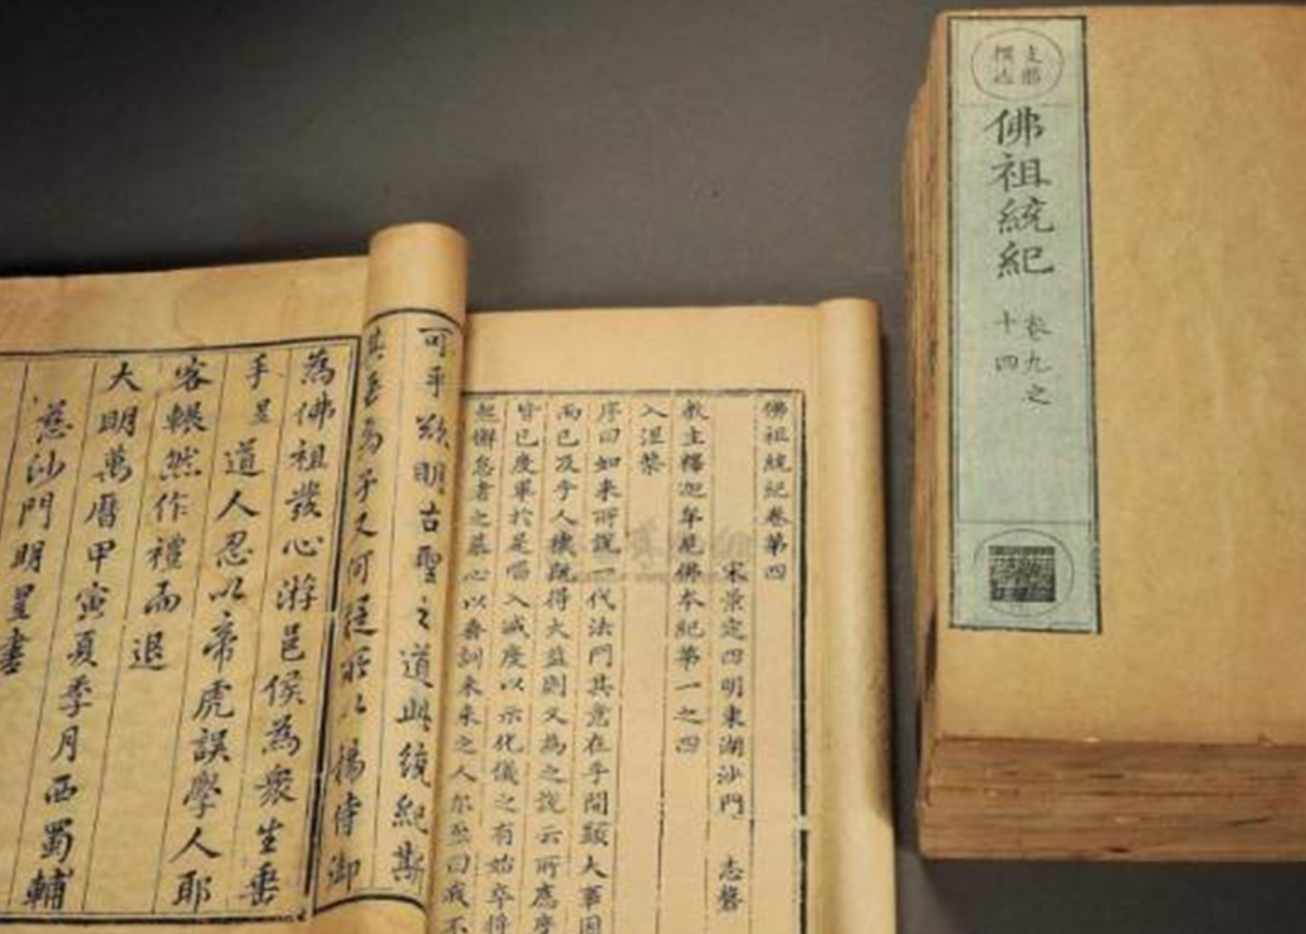 佛祖統紀
卷九之
十四
佛祖統紀卷第四
宋景定四明東湖沙門 志磐
教主釋迦牟尼佛本紀第一之四
入涅槃
序曰如來所說一代法門其意在乎開顯大事因
而已及乎人機既得大益則又為之說云所應度
皆已度畢於是唱入滅度以示化儀之有始卒將
起懈怠者之慕心以垂訓未來之人爾
可乎欲明古聖之道此統紀斯
為佛祖發心游邑侯為衆生垂
手星道人忍以帝虎誤學人耶
客冁然作禮而退
大明萬曆甲寅夏季月西蜀輔
慈沙門明昱書